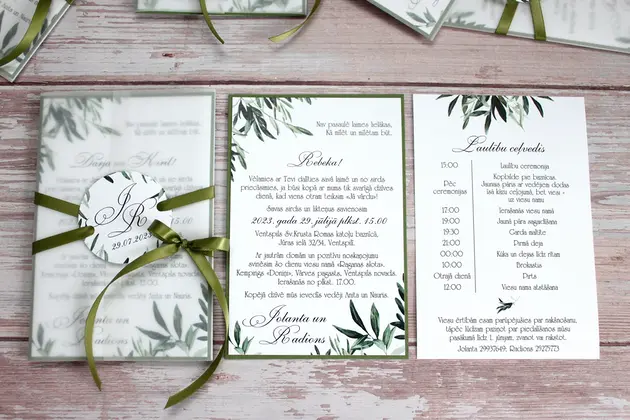 Nav pasaulē laimes lielākas,
Kā mīlēt un mīlētam būt.
Dārja un
J
R
29.07.2023
Nav pasaulē laimes lielākas,
Kā mīlēt un mīlētam būt.
Rebeka!
Vēlamies ar Tevi dalīties savā laimē un no sirds
priecāsimies, ja būsi kopā ar mums tik svarīgā dzīves
dienā, kad viens otram teiksim "Jā vārdu"!
Savas sirdis un likteņus savienosim
2023. gada 29. jūlijā plkst. 15.00
Ventspils Sv.Krusta Romas katoļu baznīcā,
Jūras ielā 32/34, Ventspilī.
Ar jautrām domām un pozitīvu noskaņojumu
svinēsim šo dienu viesu namā
Kempings "Doniņi", Vārves pagasts, Ventspils novads.
Ierašanās no plkst. 17.00.
Kopējā dzīvē mūs ievedīs vedēji Anta un Nauris.
Jolanta un
Radions
Laulību ceļvedis
15:00 Laulību ceremonija
Pēc ceremonijas Kopbilde pie baznīcas.
Jaunais pāris ar vedējiem dodas
īsā kāzu ceļojumā, bet viesi -
uz viesu namu
17:00 Ierašanās viesu namā
19:00 Jaunā pāra sagaidīšana
19:30 Garda maltīte
21:00 Pirmā deja
00:00 Kūka un dejas līdz rītam
10:00 Brokastis
Otrā dienā Pirts
12:00 Viesu nama atstāšana
Viesu ērtībām esam parūpējušies par nakšņošanu,
tāpēc lūdzam paziņot par piedalīšanos mūsu
pasākumā līdz 1. jūnijam, zvanot vai rakstot.
Jolanta 29937649; Radions 25275773